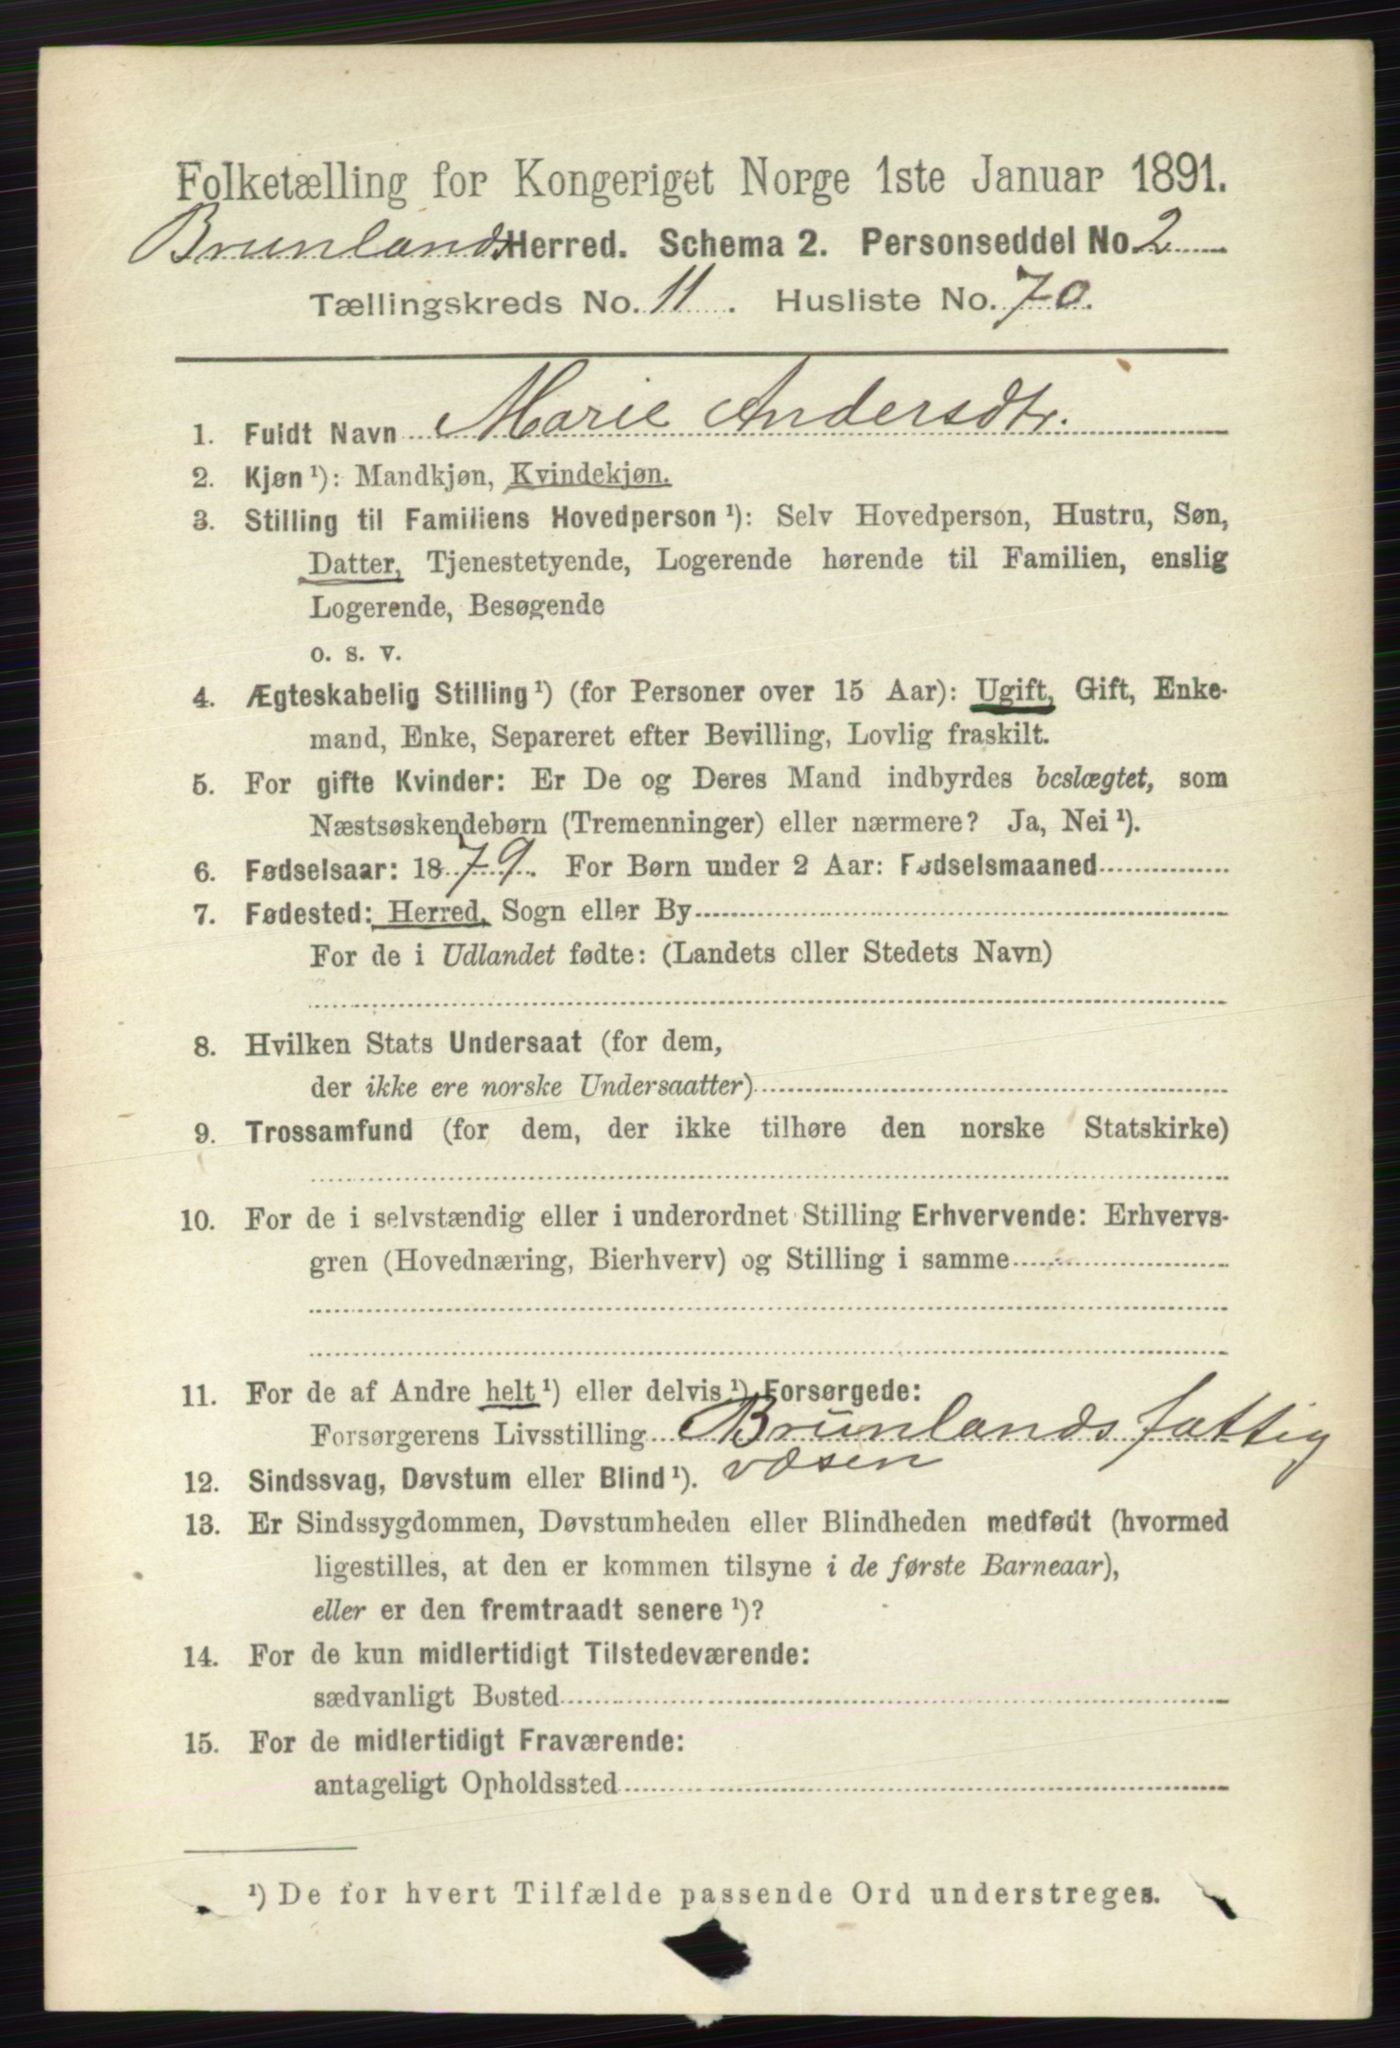 Folketælling for Kongeriget Norge 1ste Januar 1891.
Brunlands Herred. Schema 2. Personseddel No. 2
Tællingskreds No. 11. Husliste No. 70.
1. Fuldt Navn Marie Andersdtr.
2. Kjøn¹): Mandkjøn, Kvindekjøn.
3. Stilling til Familiens Hovedperson¹): Selv Hovedperson, Hustru, Søn,
Datter, Tjenestetyende, Logerende hørende til Familien, enslig
Logerende, Besøgende
o. s. v.
4. Ægteskabelig Stilling¹) (for Personer over 15 Aar): Ugift, Gift, Enke-
mand, Enke, Separeret efter Bevilling, Lovlig fraskilt.
5. For gifte Kvinder: Er De og Deres Mand indbyrdes beslægtet, som
Næstsøskendebørn (Tremenninger) eller nærmere? Ja, Nei¹).
6. Fødselsaar: 1879. For Børn under 2 Aar: Fødselsmaaned
7. Fødested: Herred, Sogn eller By
For de i Udlandet fødte: (Landets eller Stedets Navn)
8. Hvilken Stats Undersaat (for dem,
der ikke ere norske Undersaatter)
9. Trossamfund (for dem, der ikke tilhøre den norske Statskirke)
10. For de i selvstændig eller i underordnet Stilling Erhvervende: Erhvervs-
gren (Hovednæring, Bierhverv) og Stilling i samme
11. For de af Andre helt¹) eller delvis¹) Forsørgede:
Forsørgerens Livsstilling Brunlands fattig
væsen
12. Sindssvag, Døvstum eller Blind¹).
13. Er Sindssygdommen, Døvstumheden eller Blindheden medfødt (hvormed
ligestilles, at den er kommen tilsyne i de første Barneaar),
eller er den fremtraadt senere¹)?
14. For de kun midlertidigt Tilstedeværende:
sædvanligt Bosted
15. For de midlertidigt Fraværende:
antageligt Opholdssted
¹) De for hvert Tilfælde passende Ord understreges.